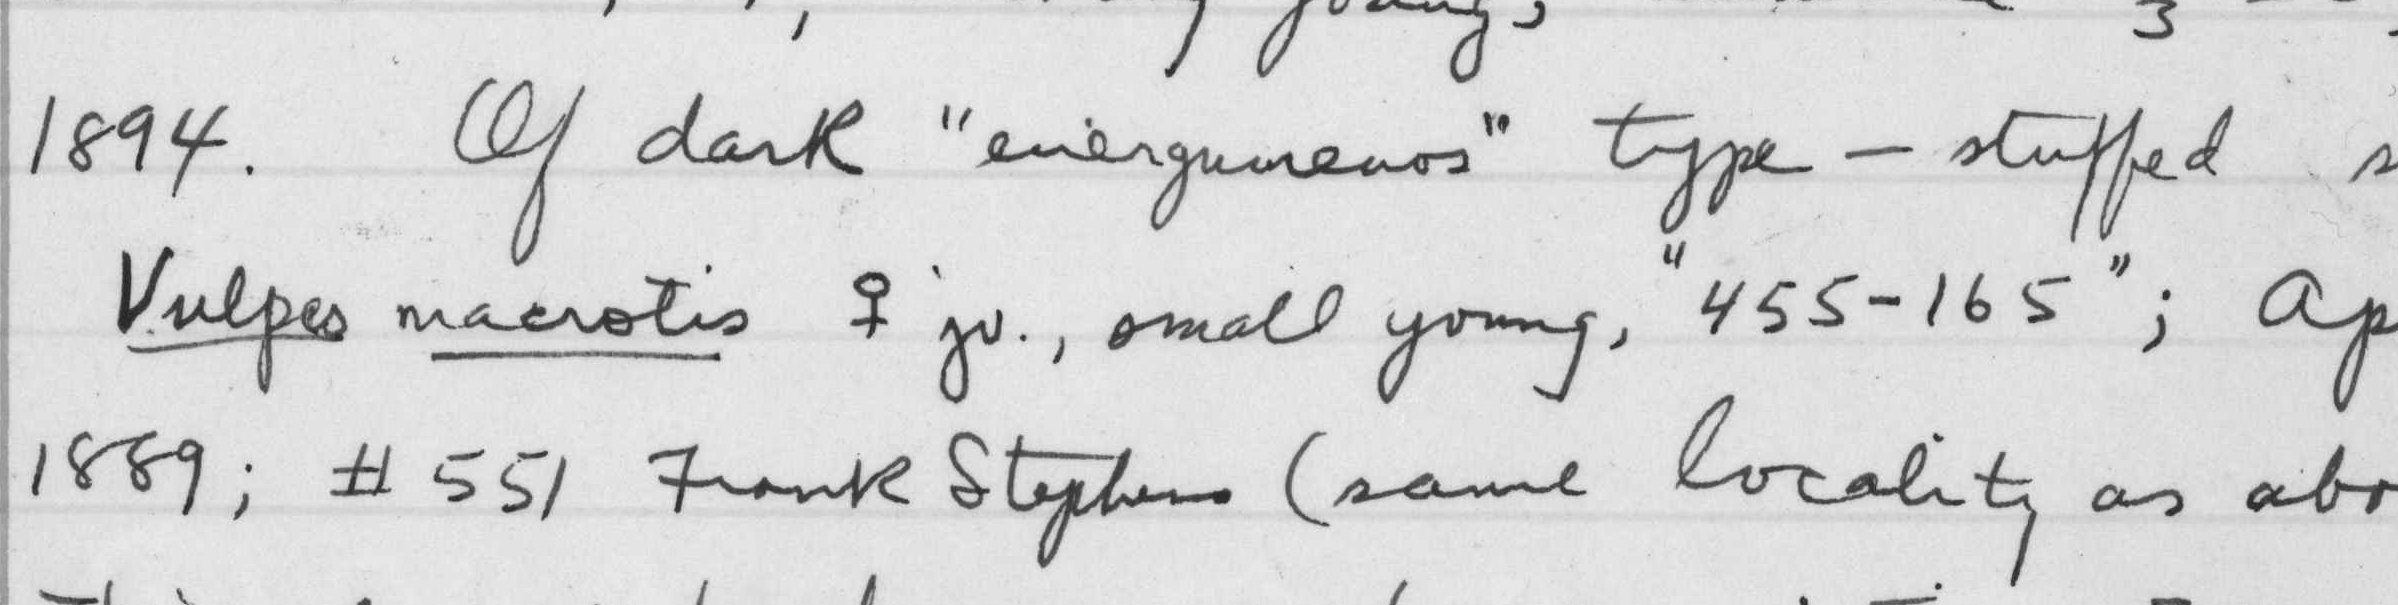 young,
1894. Of dark "energumenos" type — stuffed
Vulpes macrotis ♀ jv., small young, "455-165"; Ap
1889; # 551 Frank Stephens (same locality as abo